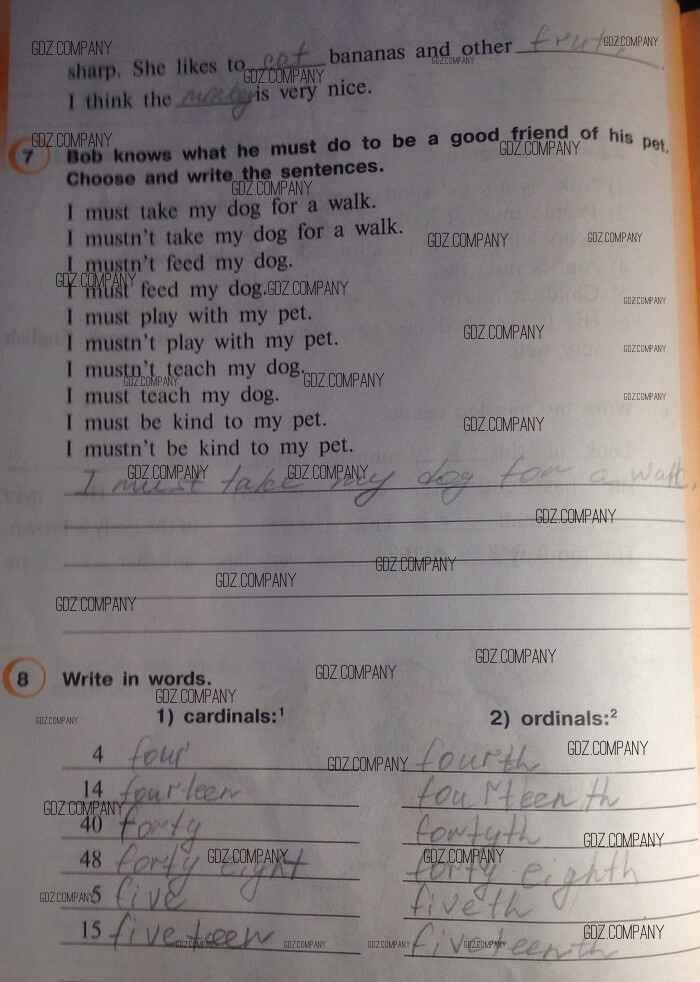 sharp. She likes to eat bananas and other fruit.
I think the is very nice.
7 Bob knows what he must do to be a good friend of his pet.
Choose and write the sentences.
I must take my dog for a walk.
I mustn't take my dog for a walk.
I mustn't feed my dog.
I must feed my dog.
I must play with my pet.
I mustn't play with my pet.
I mustn't teach my dog.
I must teach my dog.
I must be kind to my pet.
I mustn't be kind to my pet.
I must take my dog for a walk.
8 Write in words.
1) cardinals:¹ 2) ordinals:²
4 four fourth
14 fourteen fourteenth
40 forty fortyth
48 forty eight forty eighth
5 five fiveth
15 fiveteen fiveteenth
GDZ.COMPANY